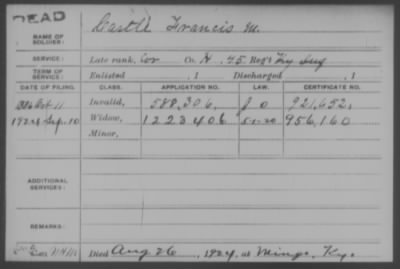 DEAD
NAME OF SOLDIER: Castle Francis M.
SERVICE: Late rank, Cor Co. H, 45 Reg't Ky Inf
TERM OF SERVICE: Enlisted , 1 Discharged , 1
DATE OF FILING. CLASS. APPLICATION NO. LAW. CERTIFICATE NO.
1886 Oct 11 Invalid, 588,306, 921,652,
1924 Sep. 10 Widow, 1223406 956,160
Minor,
ADDITIONAL SERVICES:
REMARKS:
Died Aug 26, 1924, at Mingo, Ky.